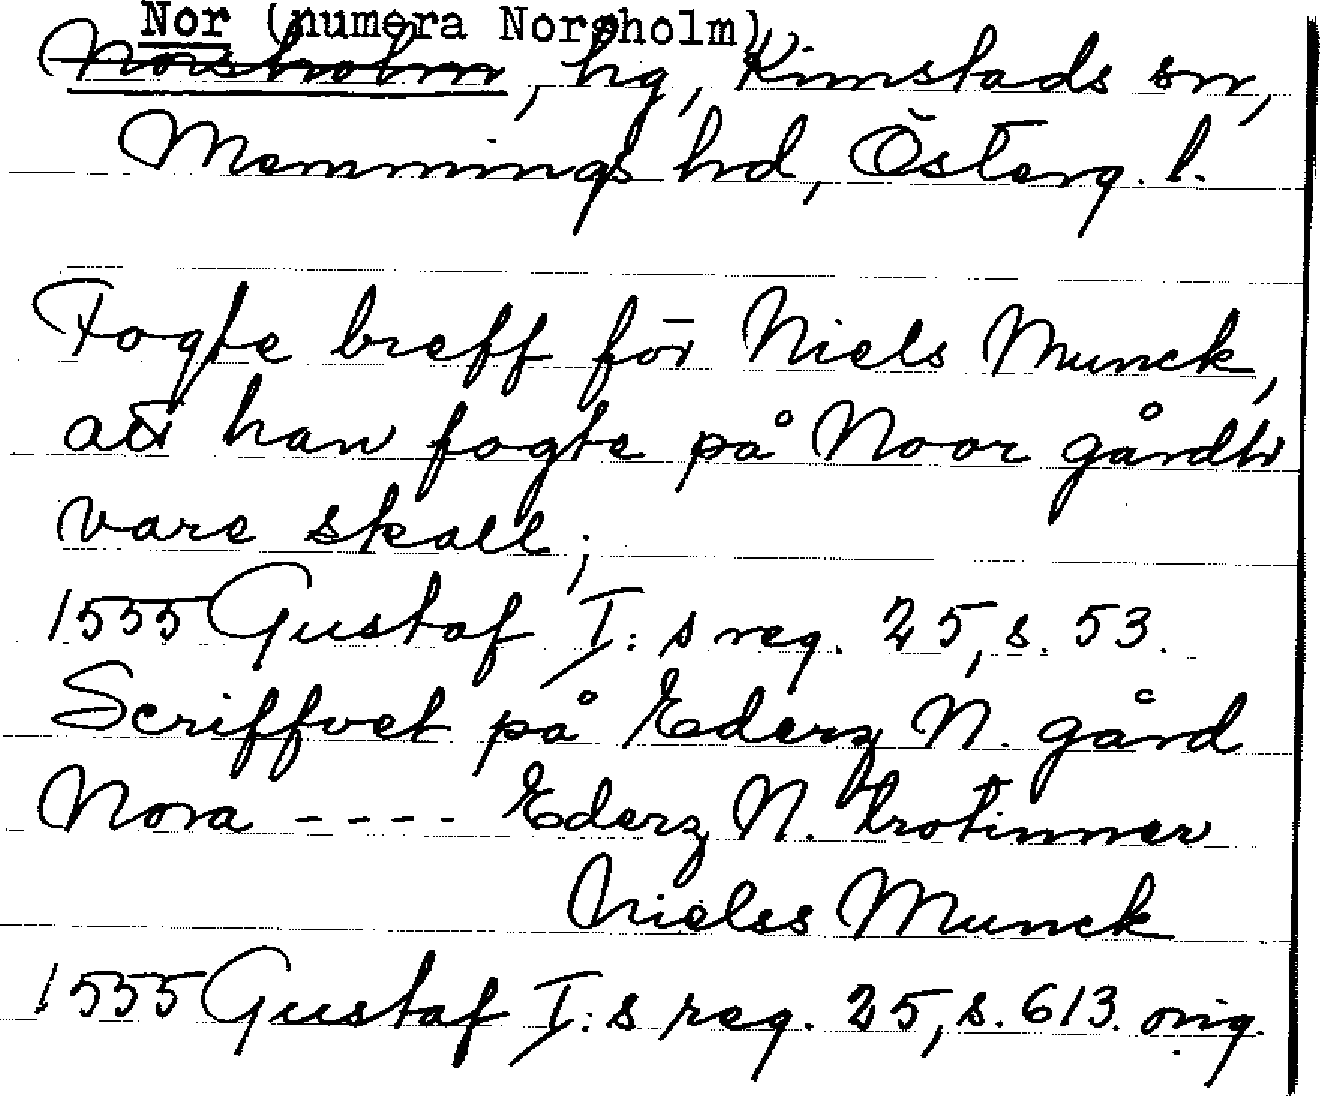 Nor (numera Norsholm)
Norsholm, hg, Kimstads sn,
Memmings hd, Österg. l.
Fogte breff för Niels Munck,
att han fogte på Noor gårdh
vare skall;
1555 Gustaf I:s reg. 25, s. 53.
Scriffvet på Ederz N. gård
Nora ---- Ederz N. trotinner
Nielss Munck
1555 Gustaf I:s reg. 25, s. 613. orig.